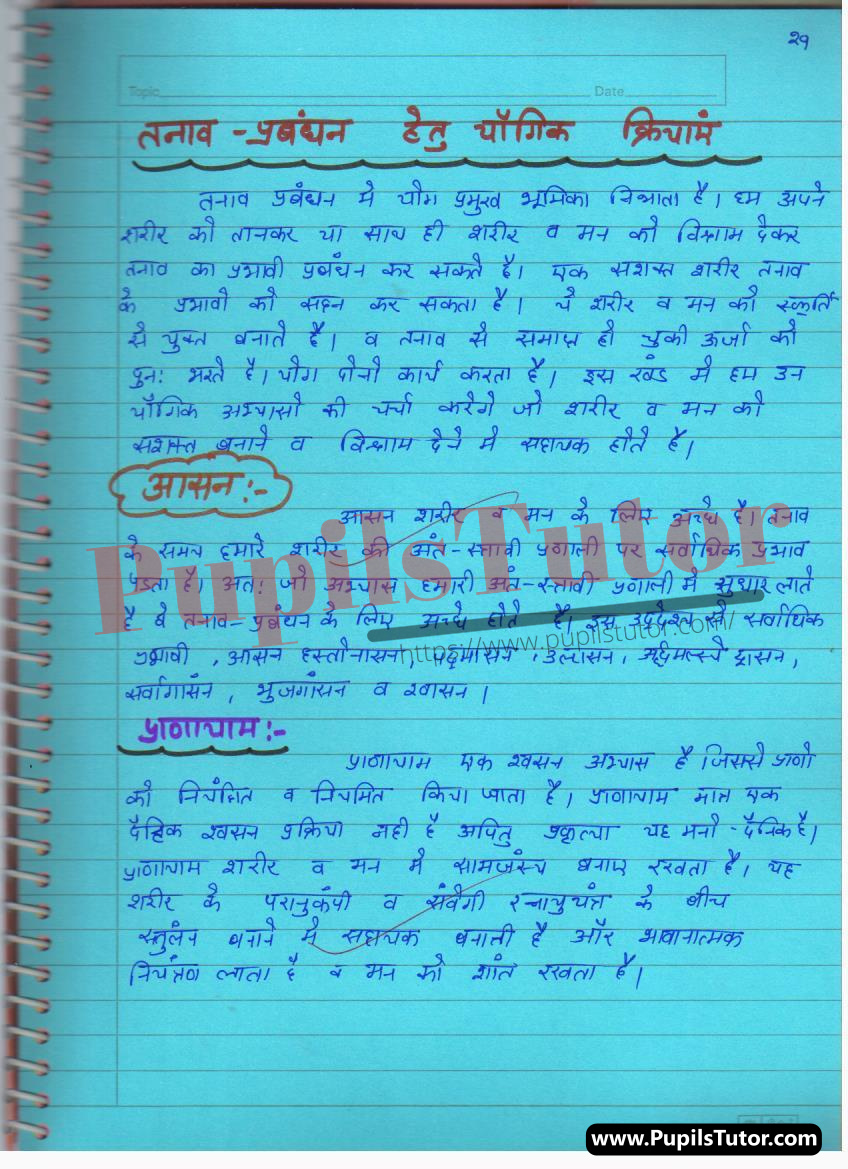 २१
Topic
Date
तनाव - प्रबंधन हेतु यौगिक क्रियाएं
तनाव प्रबंधन मे योग प्रमुख भूमिका निभाता है। हम अपने
शरीर को तानकर या साथ ही शरीर व मन को विश्राम देकर
तनाव का प्रभावी प्रबंधन कर सकते है। एक सशक्त शरीर तनाव
के प्रभावो को सहन कर सकता है। ये शरीर व मन को स्फूर्ति
से युक्त बनाते है। व तनाव से समाप्त हो चुकी ऊर्जा को
पुनः भरते है। योग दोनो कार्य करता है। इस खंड मे हम उन
यौगिक अभ्यासो की चर्चा करेगे जो शरीर व मन को
सशक्त बनाने व विश्राम देने मे सहायक होते है।
आसन :-
आसन शरीर व मन के लिए अच्छे है। तनाव
के समय हमारे शरीर की अंत-स्त्रावी प्रणाली पर सर्वाधिक प्रभाव
पडता है। अतः जो अभ्यास हमारी अंत-स्त्रावी प्रणाली मे सुधार लाते
है वे तनाव-प्रबंधन के लिए अच्छे होते है। इस उद्देश्य से सर्वाधिक
प्रभावी , आसन हस्तोनासन, पद्मासन ,
सर्वागासंन , भुजगांसन व श्वासन।
प्राणायाम :-
प्राणायाम एक श्वसन अभ्यास है जिससे प्राणो
को नियंत्रित व नियमित किया जाता है। प्राणायाम मात्र एक
दैहिक श्वसन प्रक्रिया नही है अपितु यह मनो - दैनिक है।
प्राणायाम शरीर व मन मे सामजंस्य बनाए रखता है। यह
शरीर के परानुकंपी व संवेगी स्नायुयंत्र के बीच
स्तुलंन बनाने मे सहायक बनाती है और भावानात्मक
नियंत्रण लाता है व मन को शांत रखता है।
PupilsTutor
https://www.pupilstutor.com/
www.PupilsTutor.com